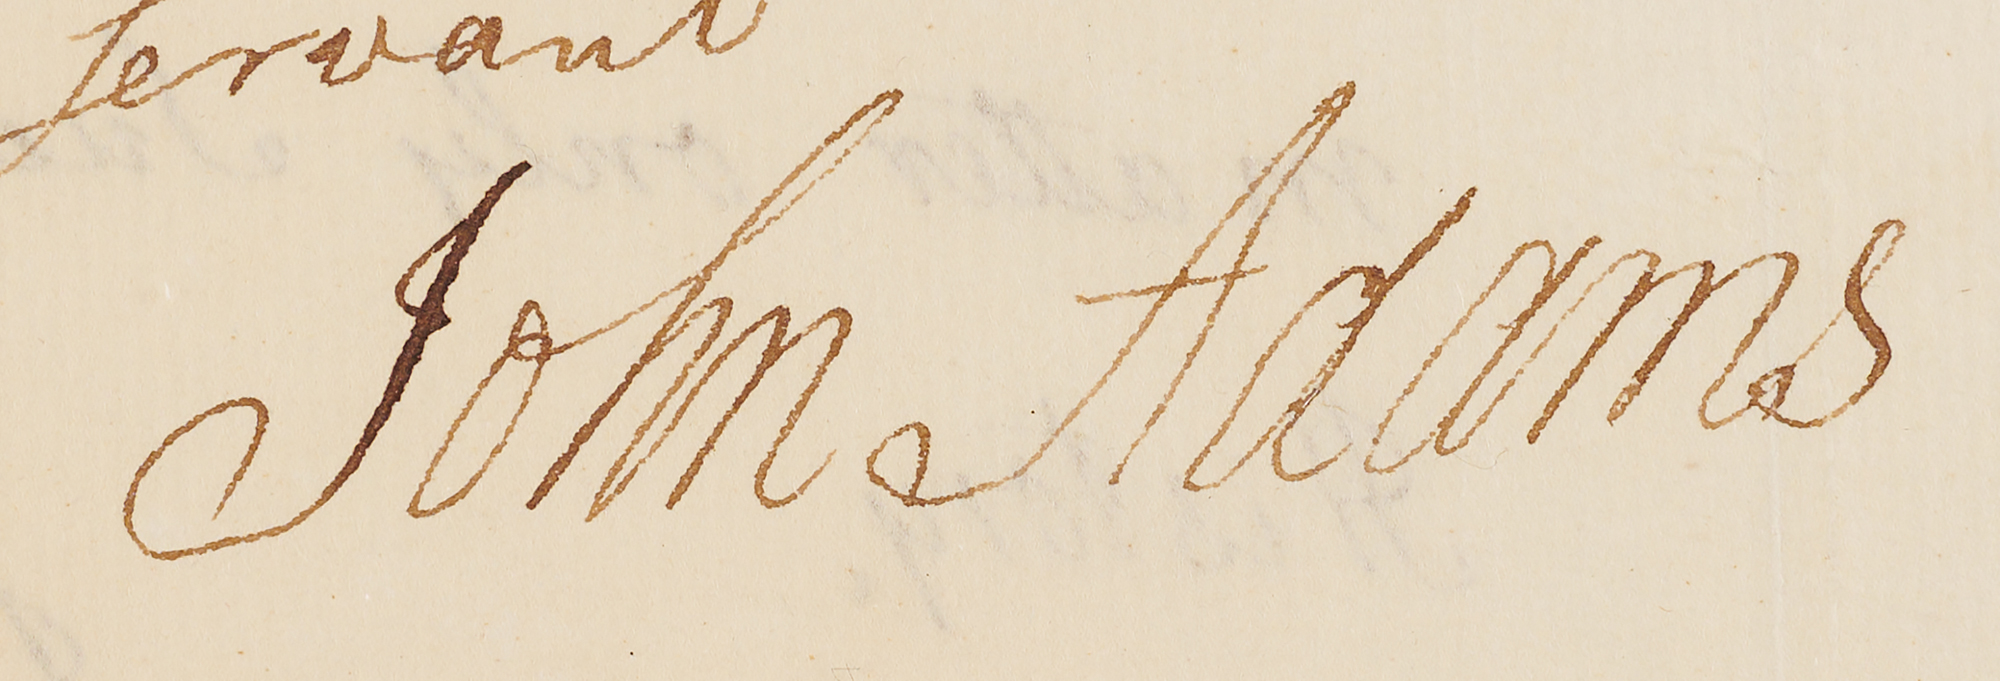 servant
John Adams